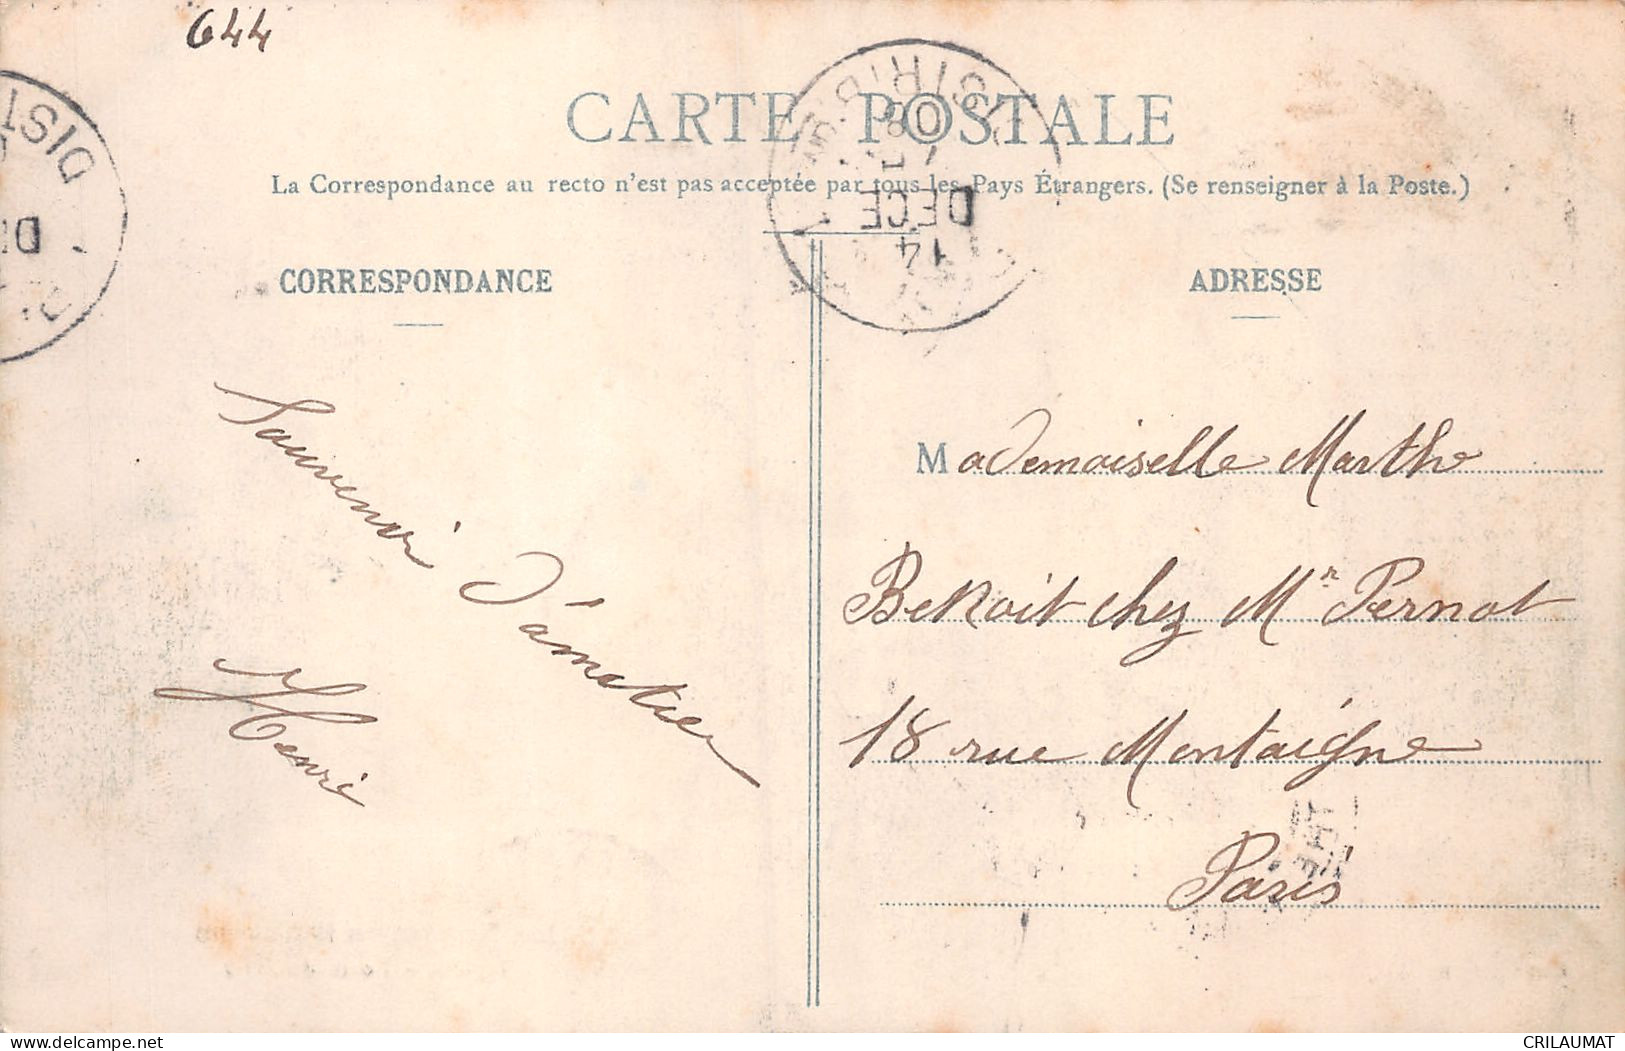 644
CARTE POSTALE
La Correspondance au recto n'est pas acceptée par tous les Pays Étrangers. (Se renseigner à la Poste.)
CORRESPONDANCE
ADRESSE
Souvenir d'amitier
Henri
Mademoiselle Marthe
Benoit chez Mr Pernot
18 rue Montaigne
Paris
DISTRIB
14
DECE
DIST
delcampe.net
CRILAUMAT